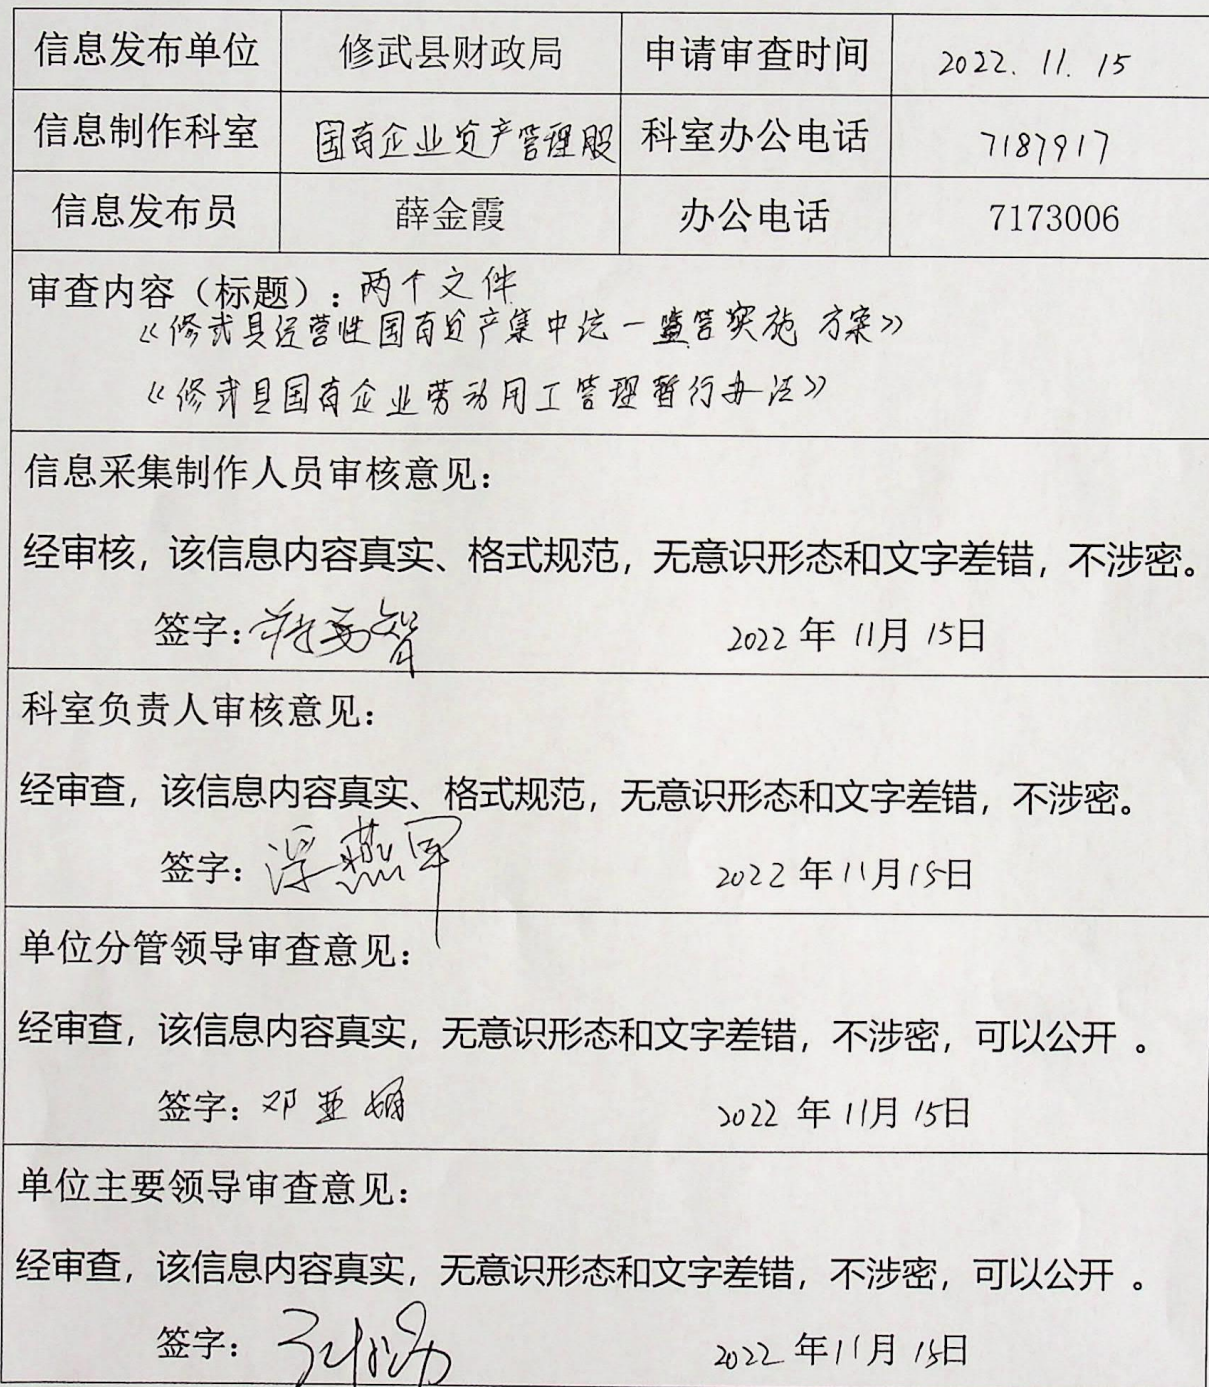 信息发布单位 修武县财政局 申请审查时间 2022. 11. 15
信息制作科室 国有企业资产管理股 科室办公电话 7187917
信息发布员 薛金霞 办公电话 7173006
审查内容（标题）：两个文件
《修武县经营性国有资产集中统一监管实施方案》
《修武县国有企业劳动用工管理暂行办法》
信息采集制作人员审核意见：
经审核，该信息内容真实、格式规范，无意识形态和文字差错，不涉密。
签字： 2022年11月15日
科室负责人审核意见：
经审查，该信息内容真实、格式规范，无意识形态和文字差错，不涉密。
签字：浮燕军 2022年11月15日
单位分管领导审查意见：
经审查，该信息内容真实，无意识形态和文字差错，不涉密，可以公开 。
签字：邓亚娟 2022年11月15日
单位主要领导审查意见：
经审查，该信息内容真实，无意识形态和文字差错，不涉密，可以公开 。
签字： 2022年11月15日